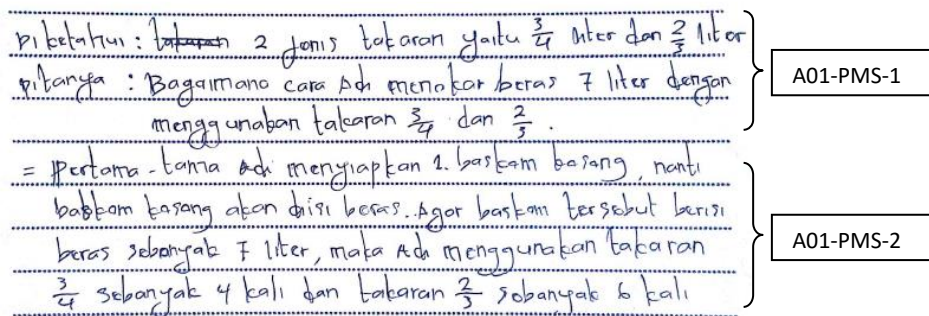 Diketahui : takaran 2 jenis takaran yaitu 3/4 liter dan 2/3 liter
Ditanya : Bagaimana cara Adi menakar beras 7 liter dengan
menggunakan takaran 3/4 dan 2/3 .
= Pertama-tama Adi menyiapkan 1. baskom kosong, nanti
baskom kosong akan diisi beras. Agar baskom tersebut berisi
beras sebanyak 7 liter, maka Adi menggunakan takaran
3/4 sebanyak 4 kali dan takaran 2/3 sebanyak 6 kali
A01-PMS-1
A01-PMS-2